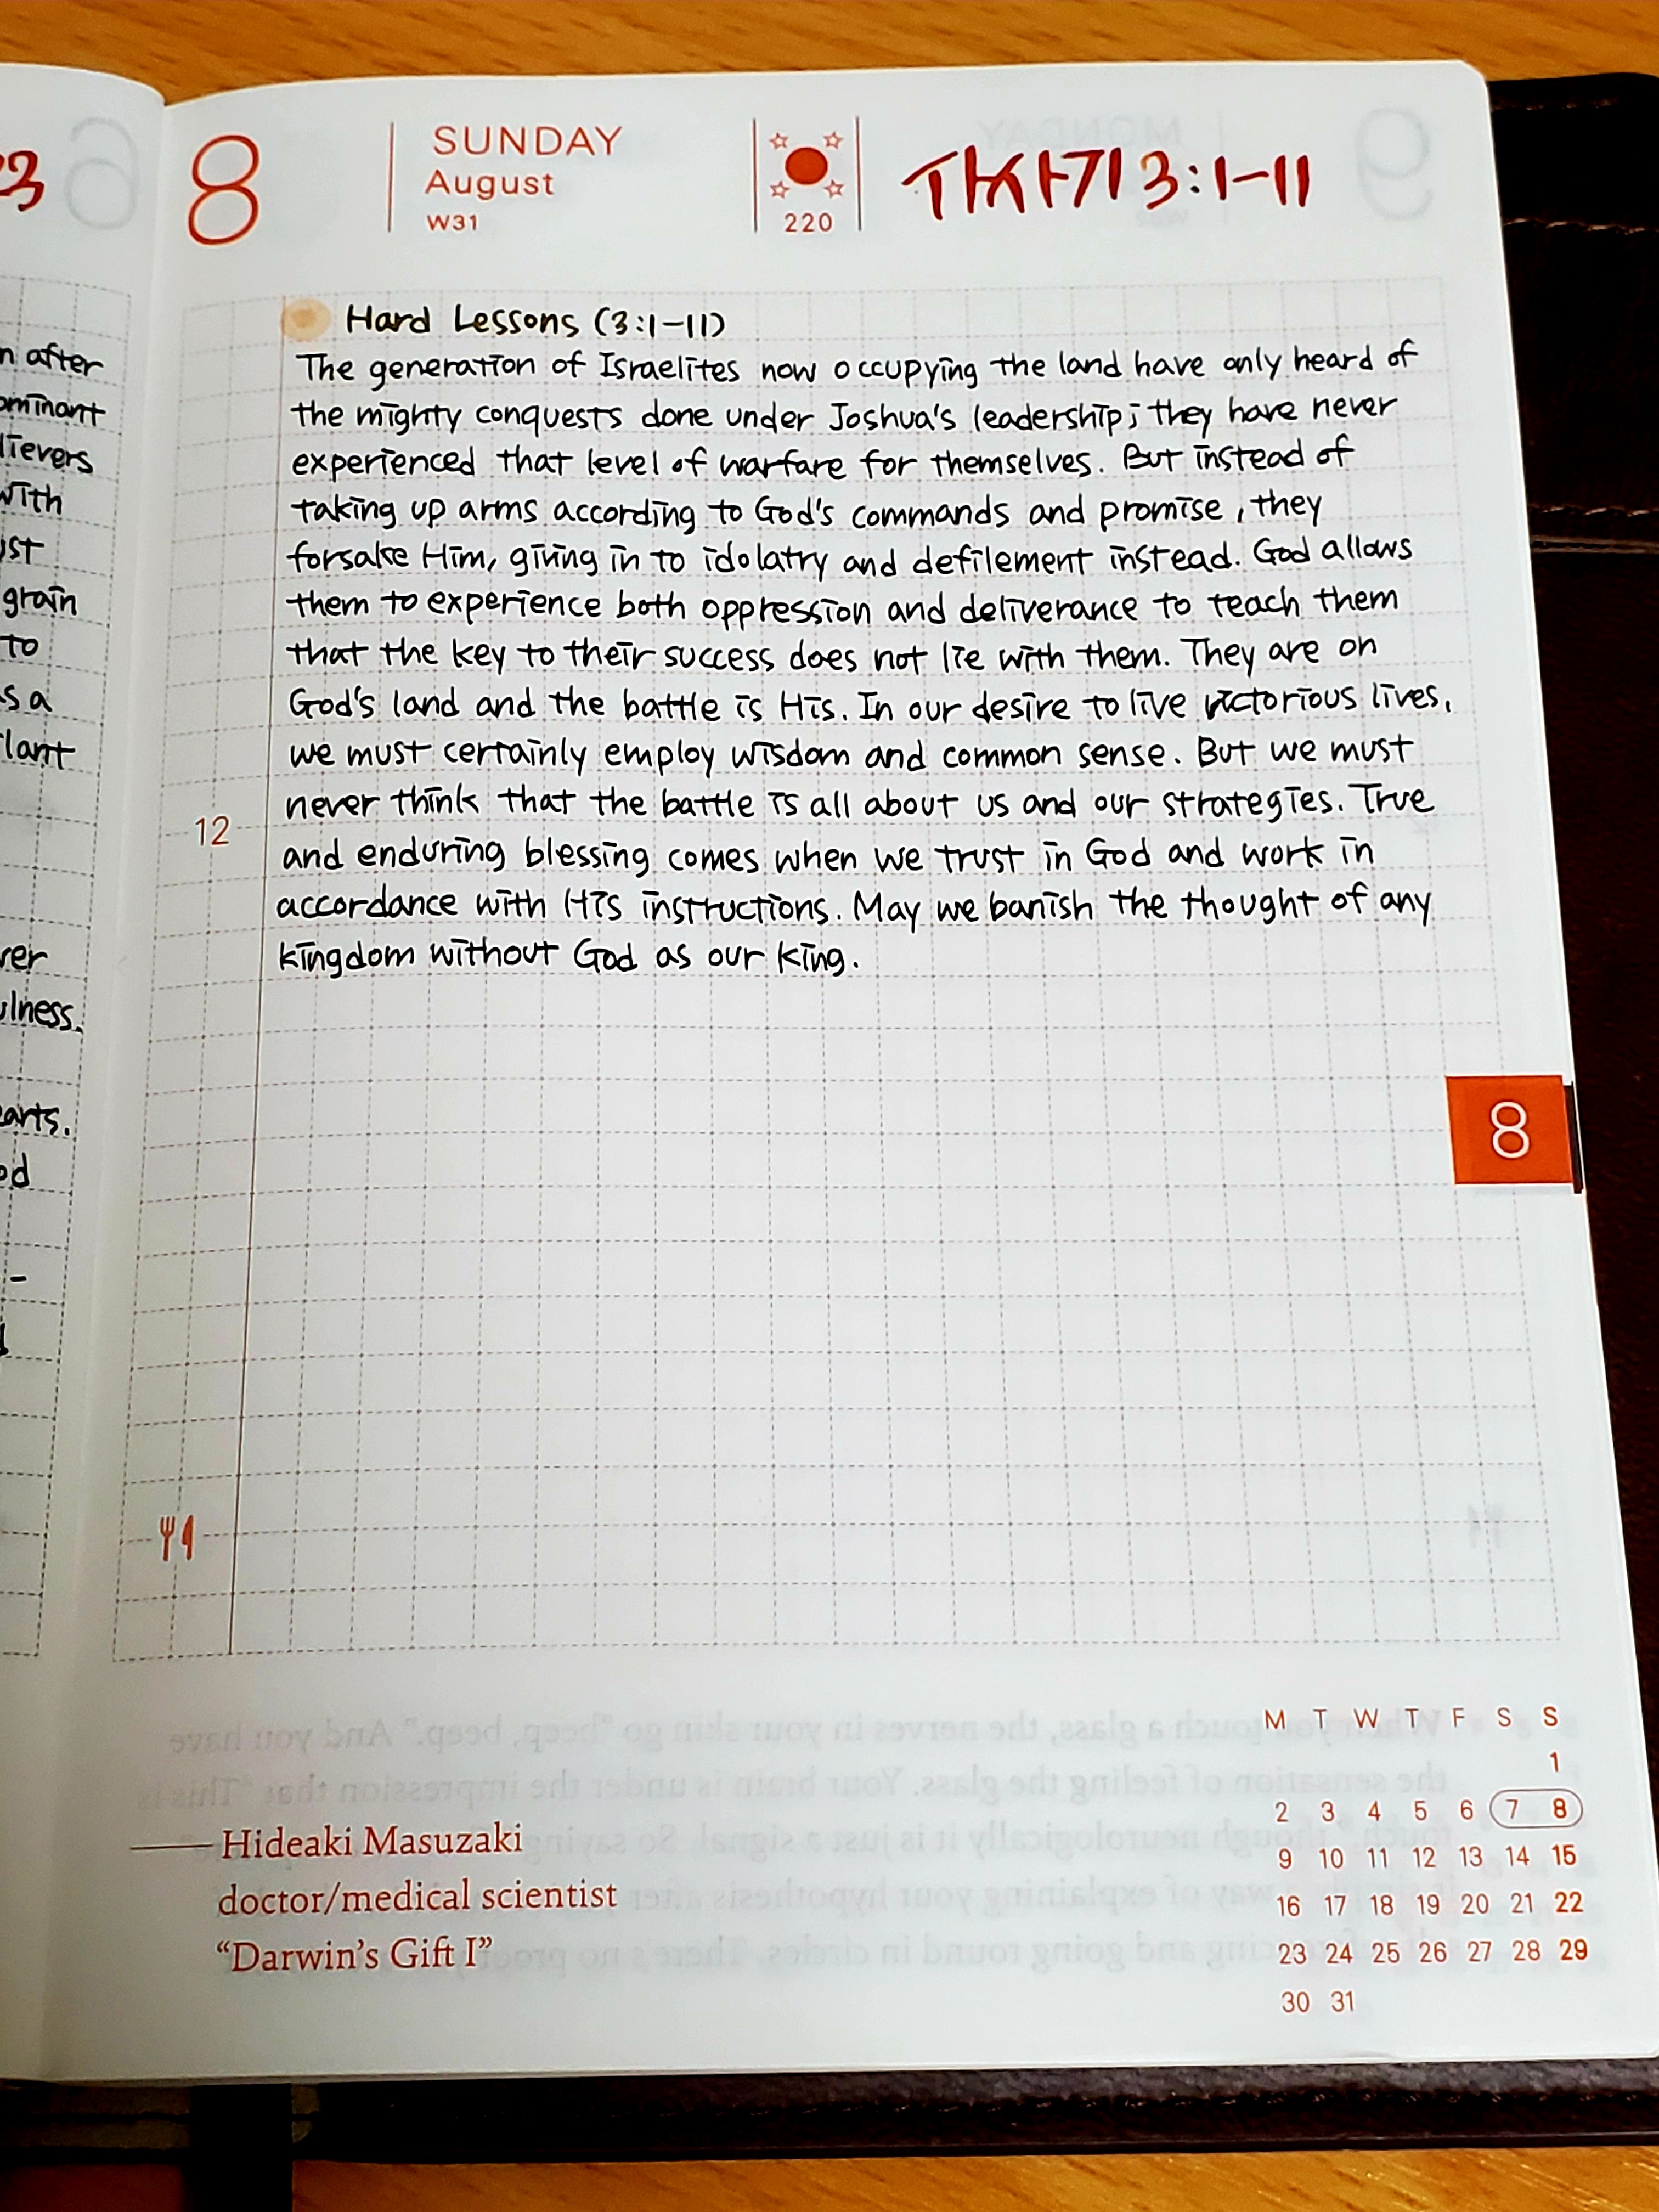 8
SUNDAY
August
W31
220
사사기 3:1-11
Hard Lessons (3:1-11)
The generation of Israelites now occupying the land have only heard of
the mighty conquests done under Joshua's leadership; they have never
experienced that level of warfare for themselves. But instead of
taking up arms according to God's commands and promise, they
forsake Him, giving in to idolatry and defilement instead. God allows
them to experience both oppression and deliverance to teach them
that the key to their success does not lie with them. They are on
God's land and the battle is His. In our desire to live victorious lives,
we must certainly employ wisdom and common sense. But we must
never think that the battle is all about us and our strategies. True
and enduring blessing comes when we trust in God and work in
accordance with His instructions. May we banish the thought of any
kingdom without God as our king.
12
8
—— Hideaki Masuzaki
doctor/medical scientist
“Darwin's Gift I”
M T W T F S S
1
2 3 4 5 6 7 8
9 10 11 12 13 14 15
16 17 18 19 20 21 22
23 24 25 26 27 28 29
30 31
6
23
after
with
grain
to
s a
arts.